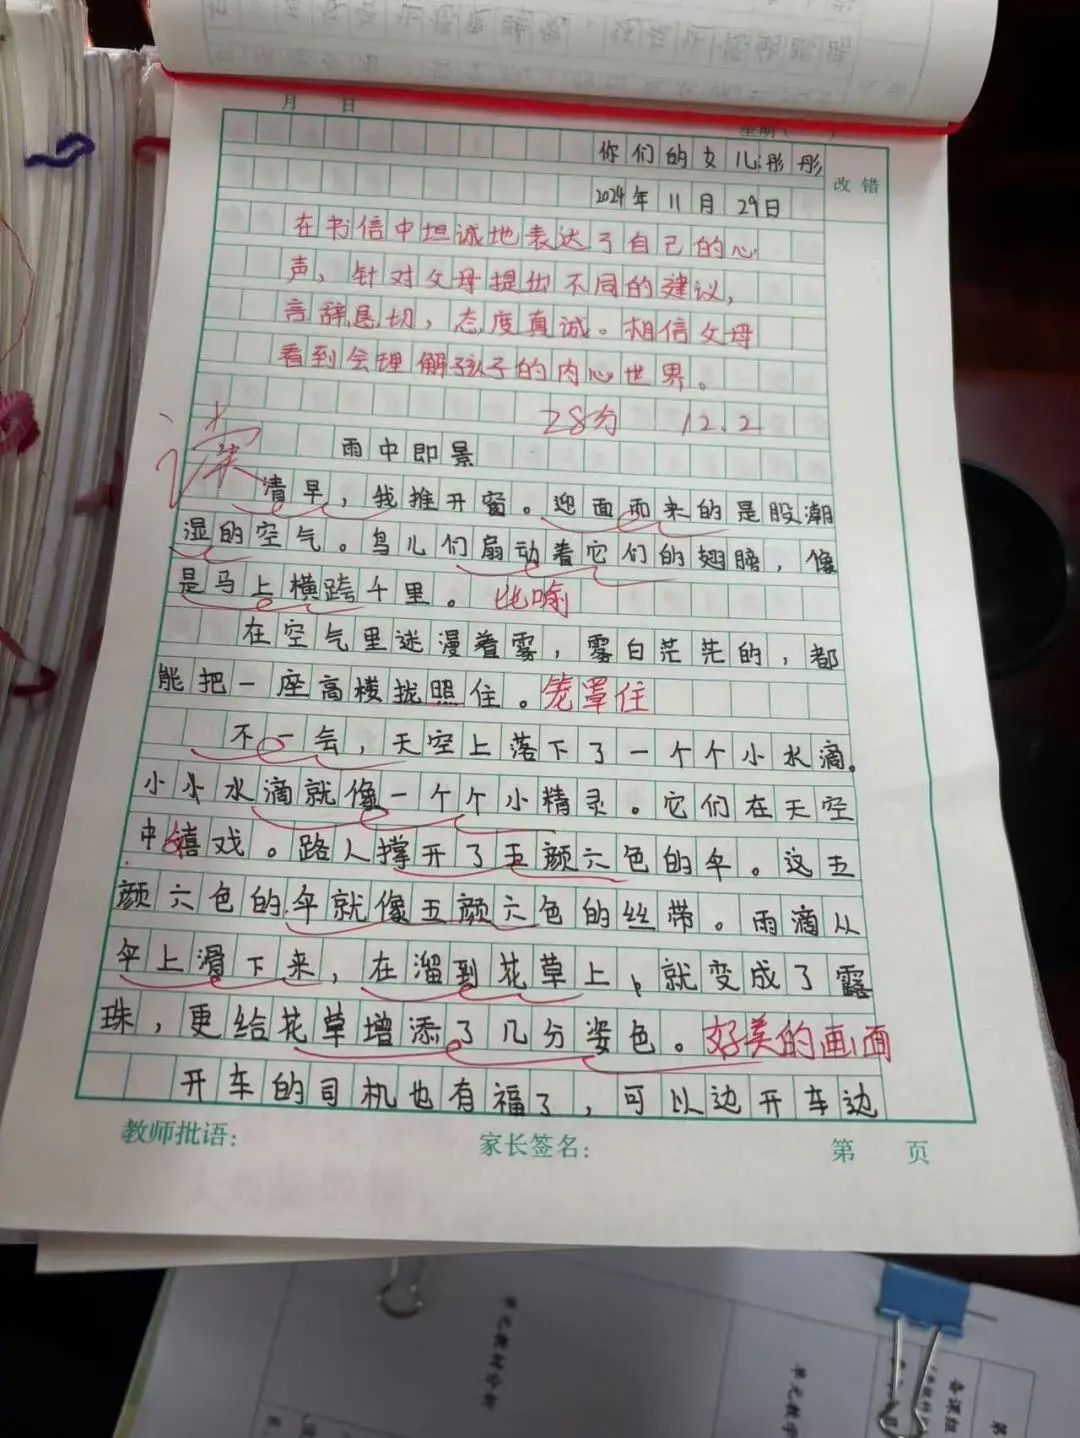 月 日
星期( )
改错
你们的女儿彤彤
2024年11月29日
在书信中坦诚地表达了自己的心
声，针对父母提出不同的建议，
言辞恳切，态度真诚。相信父母
看到会理解孩子的内心世界。
28分 12.2
雨中即景
清早，我推开窗。迎面而来的是股潮
湿的空气。鸟儿们扇动着它们的翅膀，像
是马上横跨千里。 比喻
在空气里迷漫着雾，雾白茫茫的，都
能把一座高楼拢照住。笼罩住
不一会，天空上落下了一个个小水滴。
小小水滴就像一个个小精灵。它们在天空
中嬉戏。路人撑开了五颜六色的伞。这五
颜六色的伞就像五颜六色的丝带。雨滴从
伞上滑下来，在溜到花草上，就变成了露
珠，更给花草增添了几分姿色。好美的画面
开车的司机也有福了，可以边开车边
教师批语: 家长签名: 第 页
单元教材分析
单元教学
备课组
第